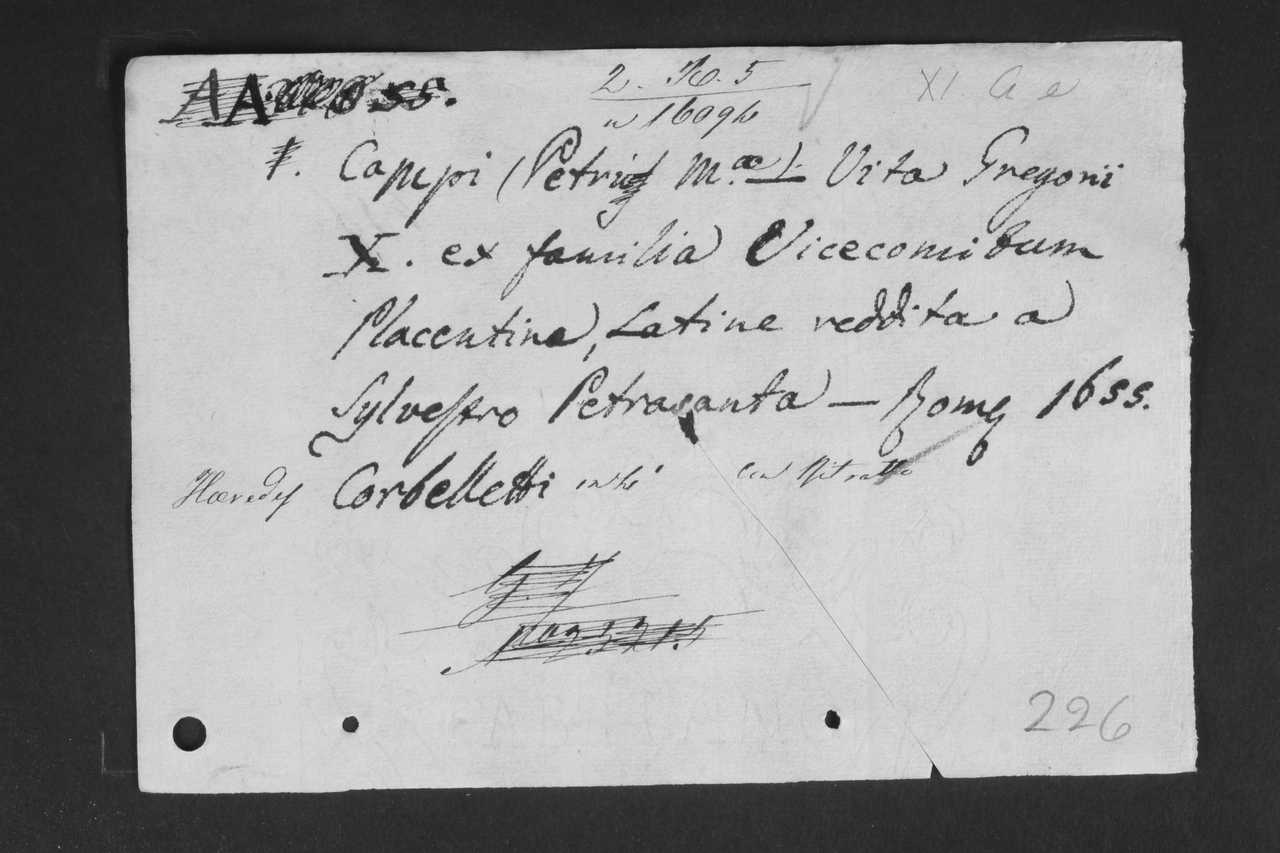 2. 10. 5
XI. a e
16096
Campi (Petri M.ae) Vita Gregorii
X. ex familia Vicecomitum
Placentina, Latine reddita a
Sylvestro Petrasanta — Romę 1655.
Hæredes Corbelletti in 4°
226